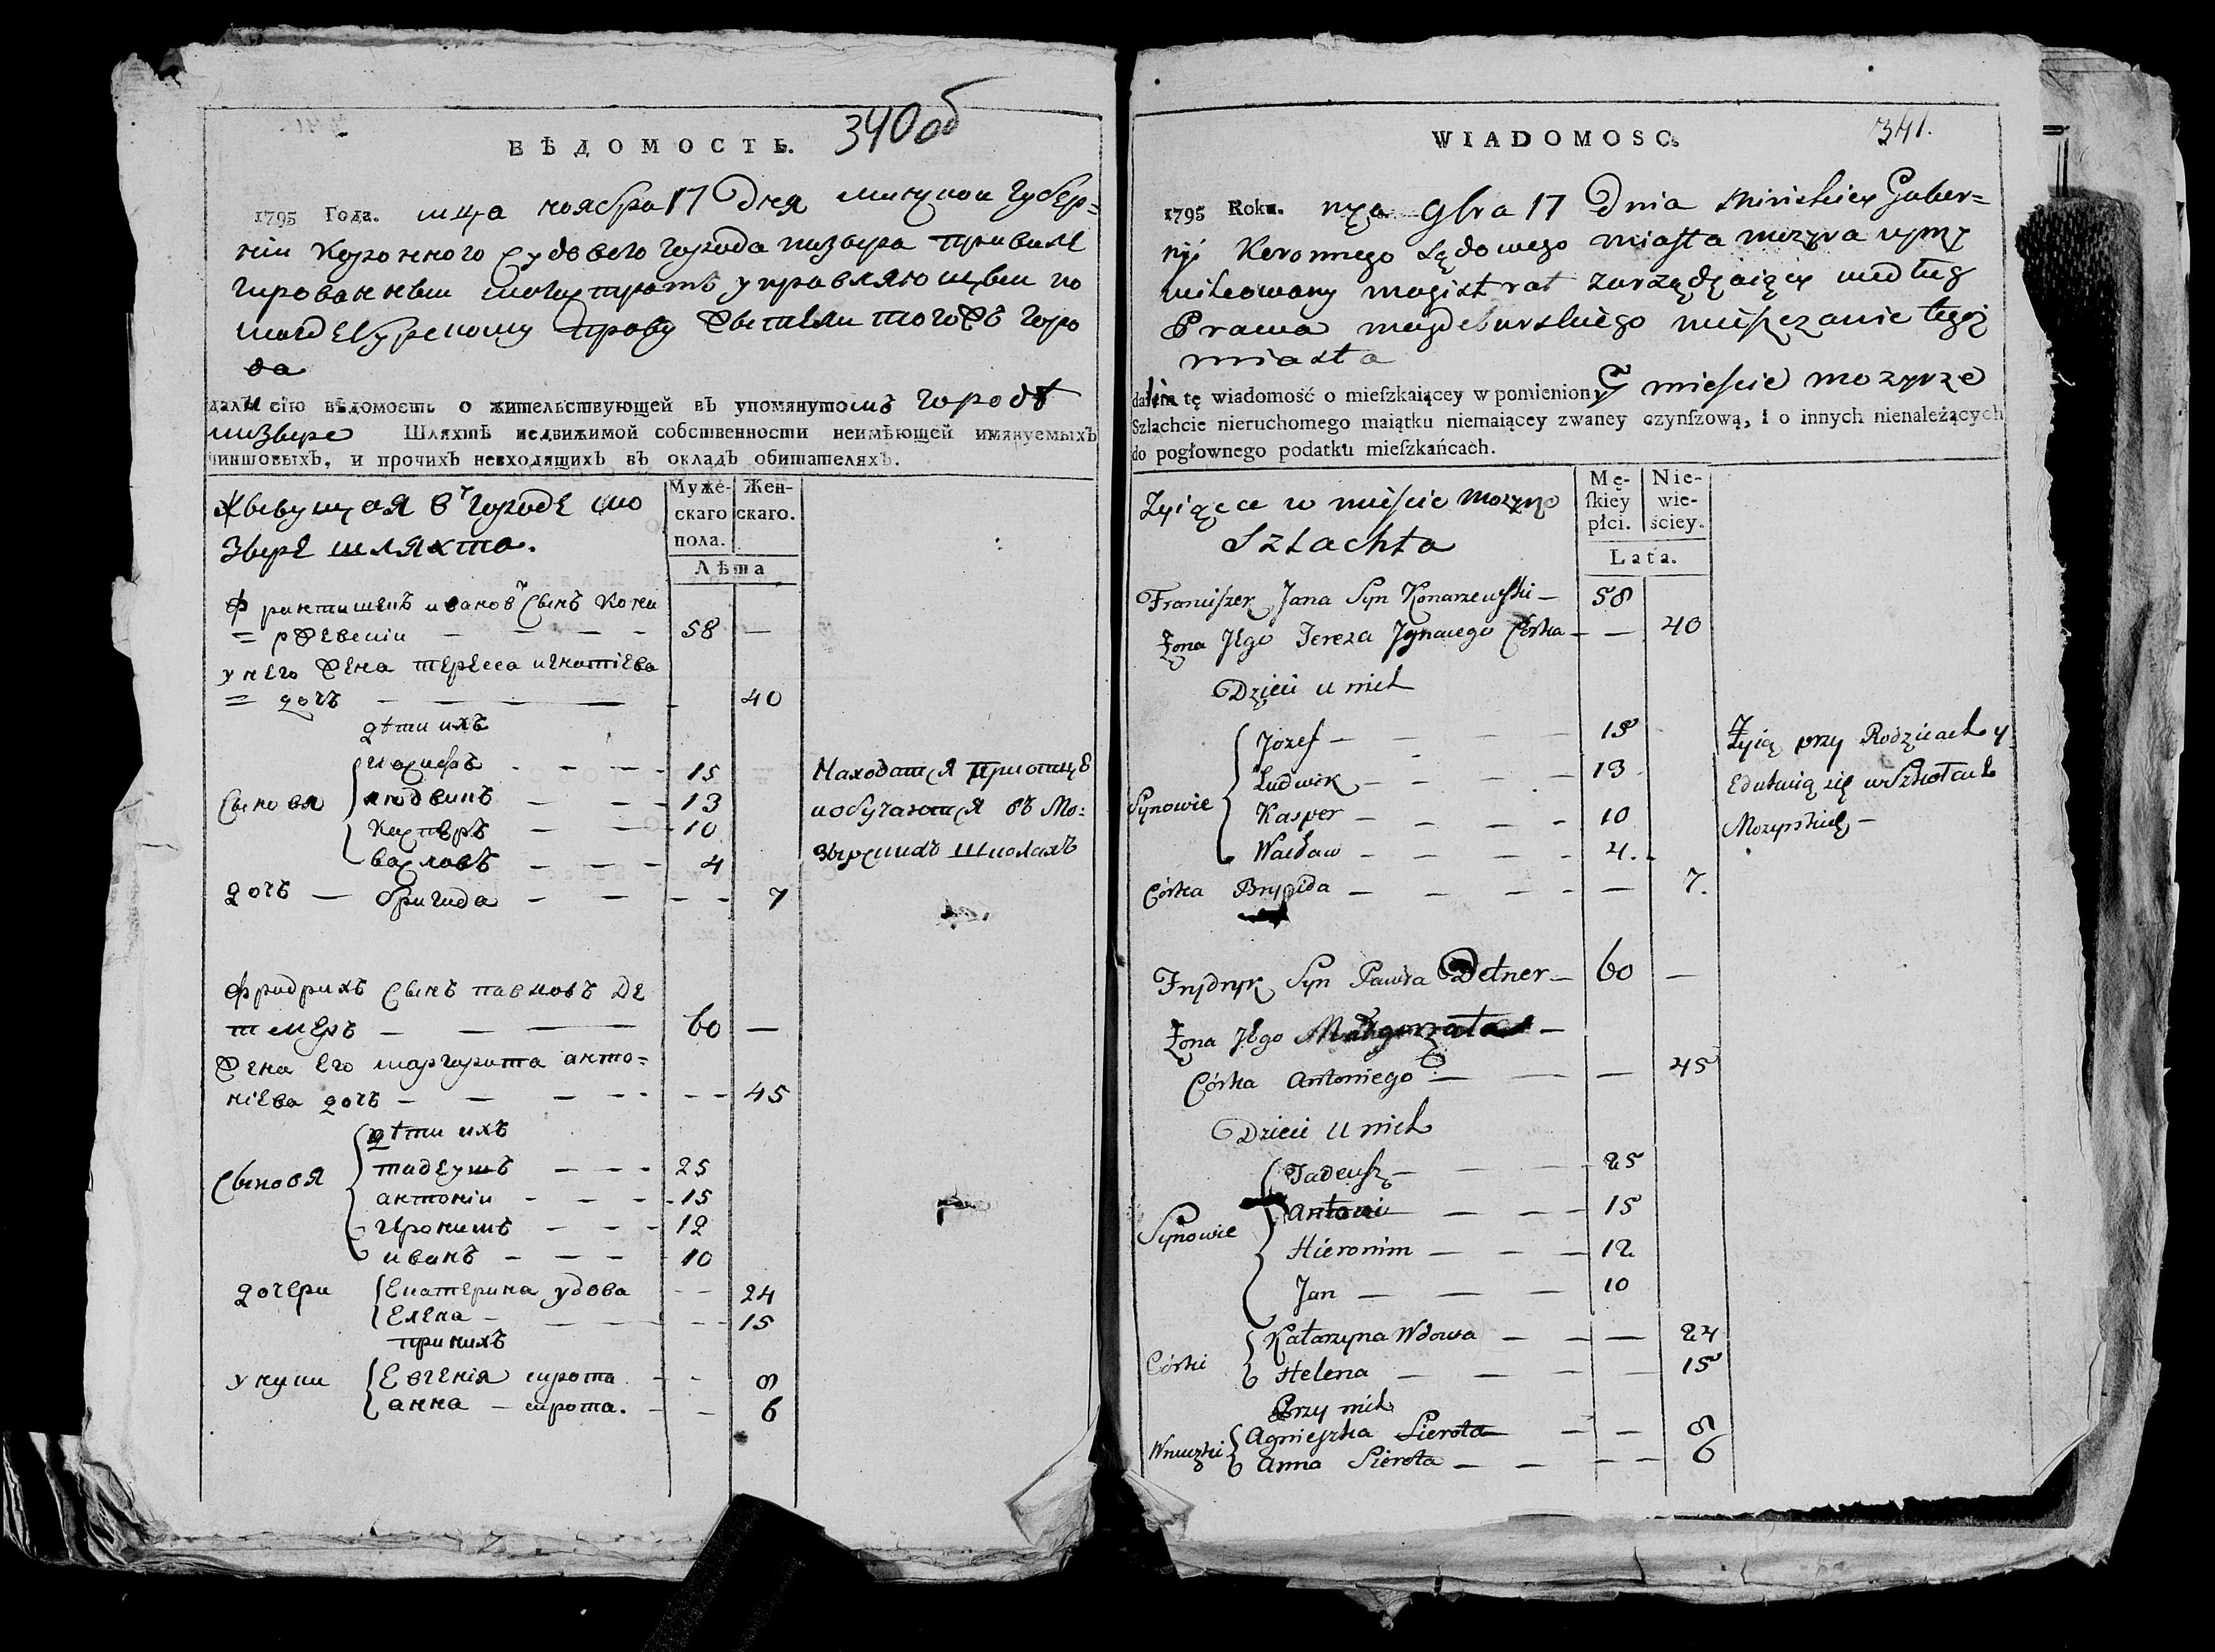 ВѢДОМОСТЬ. 340об
1795 Года. мца ноября 17 Дня минской Губер=
ніи Коронного судового города мозыра привиле
гированным магистратъ управляющей по
магдебурскому праву жытели тогожъ горо
да
дали сію вѣдомость о жительствующей въ упомянутомъ городѣ
мозыре Шляхтѣ недвижимой собственности неимѣющей имянуемыхъ
чиншовыхъ, и прочихъ невходящихъ въ окладъ обитателяхъ.
Муже-
скаго
пола.
Жен-
скаго.
Лѣта
Жывущая в городе мо
зыре шляхта.
Францишекъ Иванов Сынъ Кона
= ржевскіи — — — — 58 —
у него жена тересса игнатіева
= дочь — — — — 40
дѣти ихъ
Сыновя
иосифъ - - - - 15
людвикъ — — - 13
касперъ — — - 10
вацлавъ — — — 4
Находатся при отцѣ
и обучаются въ Мо:
зырскихъ школахъ
дочь — бригида - — — - - 7
Фридрихъ Сынъ павловъ Де
тнеръ — — — — 60 —
жена Его маргарита анто=
ніева дочь — — — - - - - 45
дѣти ихъ
Сыновя
тадеушъ — — - - 25
антоніи - - - - 15
иеронимъ — — - 12
иванъ - — — - 10
дочери
Екатерина удова - - 24
Елена - — — - - 15
при нихъ
унуки
Евгенія сирота - - 8
анна — сирота. — — 6
WIADOMOSC. 341.
1795 Roku. mca 9bra 17 Dnia Minskiey Guber=
nji Koronnego Sądowego miasta mozyra uprzy
wileiowany magistrat zarządzaiący według
Prawa magdeburskiego mieszczanie tegoż
miasta
dalim tę wiadomość o mieſzkaiącey w pomienionym mieście mozyrze
Szlachcie nieruchomego maiątku niemaiącey zwaney czynſzową, i o innych nienależących
do pogłownego podatku mieſzkańcach.
Mę-
ſkiey
płci.
Nie-
wie-
ściey.
Lata.
Zyiące w mieście Mozyrze
Szlachta
Franciszek Jana Syn Konarzewski — 58
Żona Jego Tereza Jgnacego Córka — — 40
Dzieci u nich
Synowie
Jozef — — — — 15
Ludwik — — - - 13
Kasper — — — - 10
Wacław — — — - 4.
Żyią przy Rodzicach y
Edukuią się w Szkołach
Mozyrskich —
Córka Brygida — — — - — 7.
Frydryk Syn Pawła Detner — 60 —
Żona Jego Małgorzata —
Córka Antoniego — — — 45
Dzieci u nich
Synowie
Tadeusz — — — 25
Antoni — — — 15
Hieronim — — — 12
Jan — — — 10
Córki
Katarzyna Wdowa — — — 24
Helena — — — — 15
Przy nich
Wnuczki
Agnieszka Sierota — — 8
Anna Sierota — — - - 6